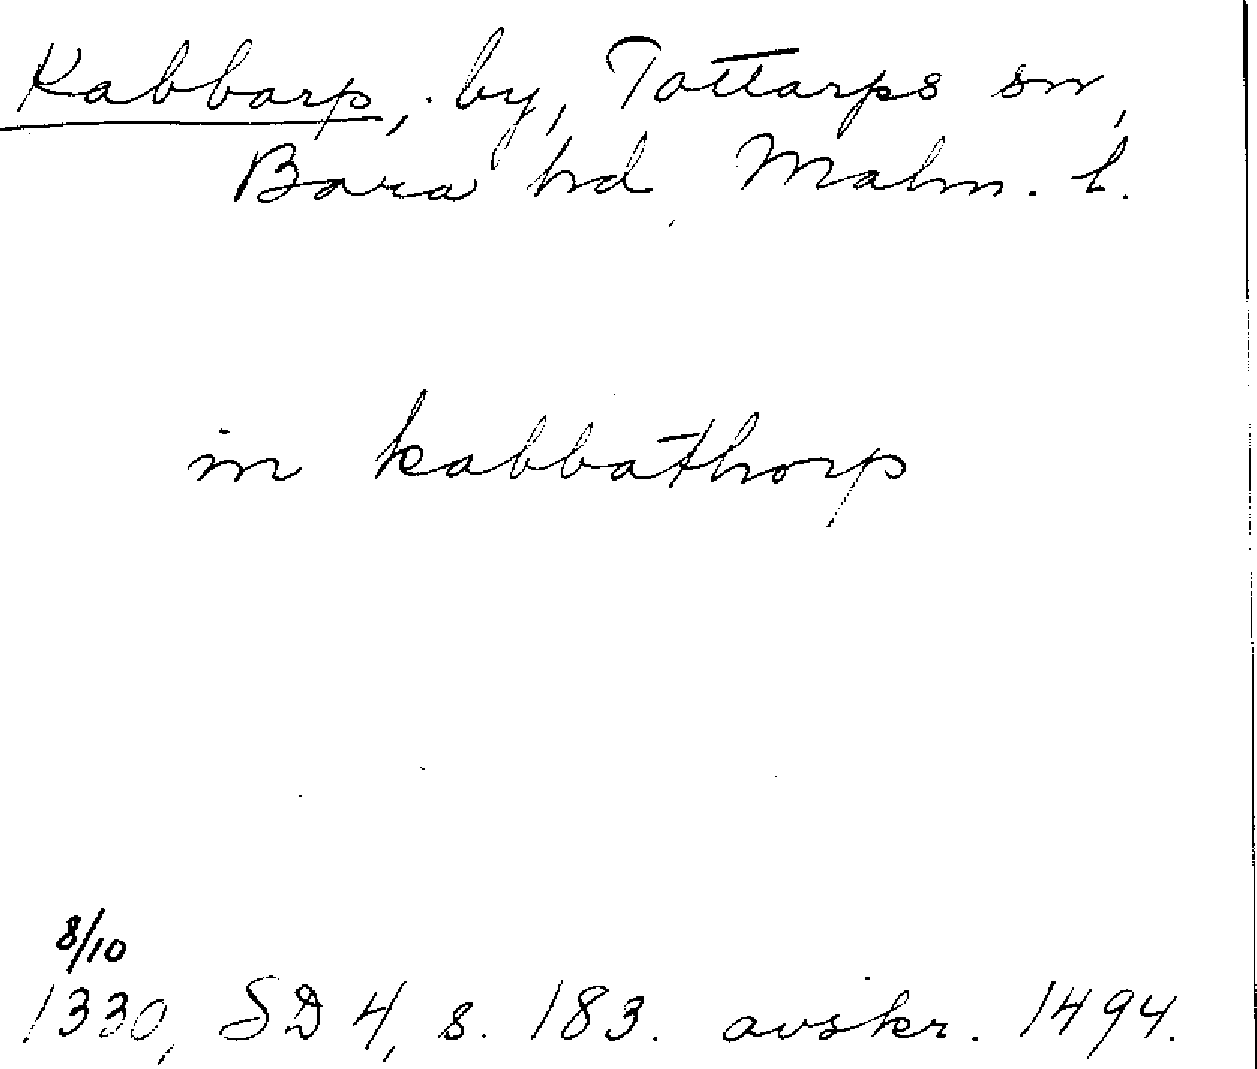 Kabbarp, by, Tottarps sn,
Bara hd, Malm. l.
in kabbathorp
8/10
1330, SD 4, s. 183. avskr. 1494.